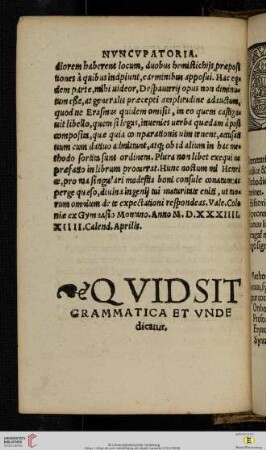 NVNCVPATORIA.
diorem haberent locum, duobus hemistichijs, præposi
tiones à quibus incipiunt, carminibus apposui. Hac equi
dem parte, mihi uideor, Despauterij opus non diminu
tum esse, at generalis præcepti amplitudine adauctum,
quod ne Erasmus quidem omisit, in eo quem castiga
uit libello, quem si legis, inuenies uerba quædam à post
composita, quæ quia comparationis uim tenent, accusati
uum cum datiuo admittunt, atque ob id alium in hac me
thodo sortita sunt ordinem. Plura non libet exequi ne
præfatio in librum procurrat. Hunc noctum mi Henri
ce, pro tua singulari modestia boni consule conatum: ac
perge quæso, diuini ingenij tui maturitate eniti, ut tuo
rum omnium de te expectationi respondeas. Vale. Colo
niæ ex Gymnasio Montano. Anno M. D. XXXIIII.
XIIII. Calend. Aprilis.
QVID SIT
GRAMMATICA ET VNDE
dicatur.